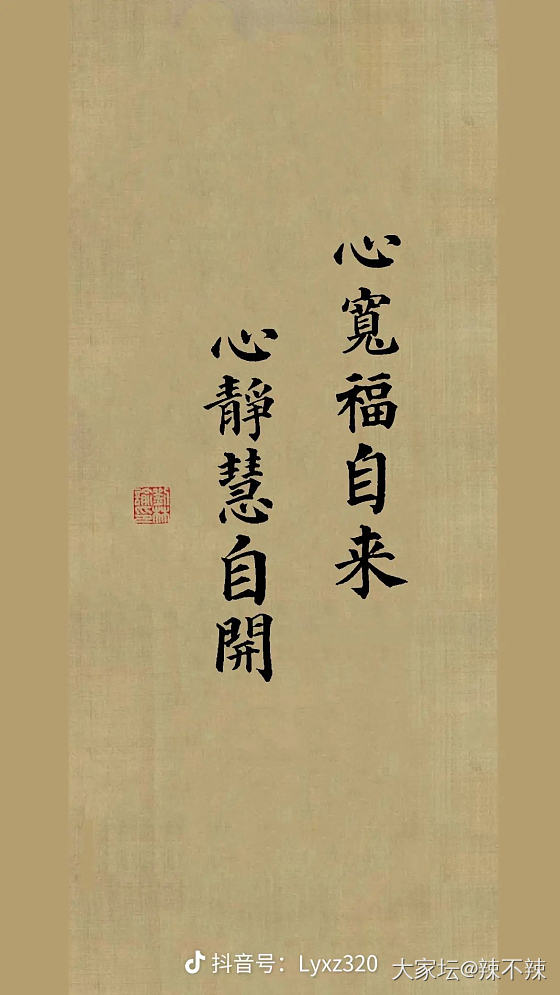 心寬福自来
心靜慧自開
抖音号：Lyxz320
大家坛@辣不辣